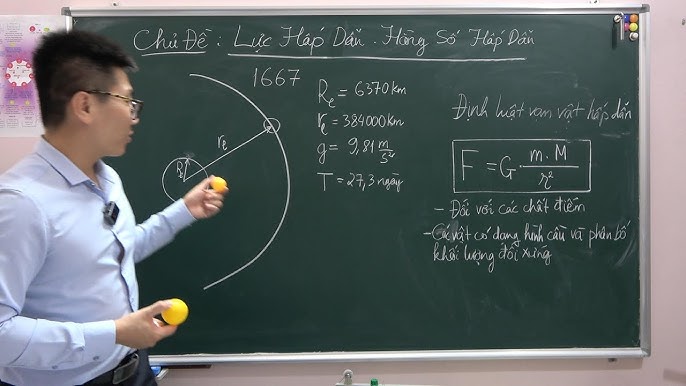 Chủ Đề : Lực Hấp Dẫn . Hằng Số Hấp Dẫn
1667
R
rₑ
Rₑ = 6370 km
rₑ = 384000 km
g = 9,81 m/s²
T = 27,3 ngày
Định luật vạn vật hấp dẫn
F = G · m . M / r²
- Đối với các chất điểm
- Các vật có dạng hình cầu và phân bố
khối lượng đối xứng